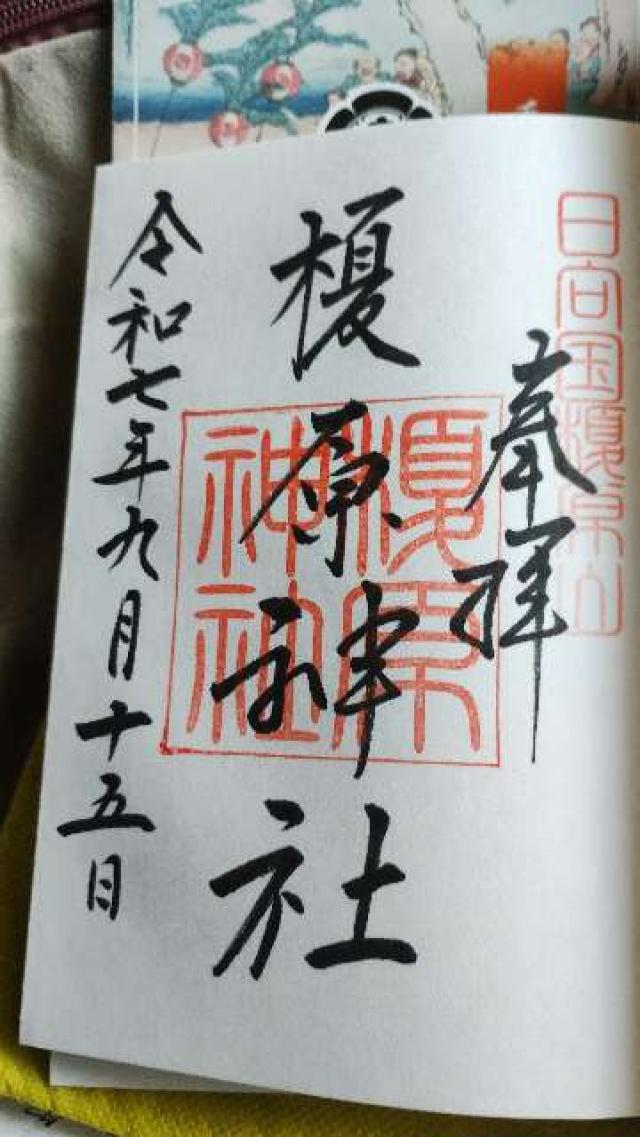 日向国榎原山
奉拝
榎原神社
榎原
神社
令和七年九月十五日